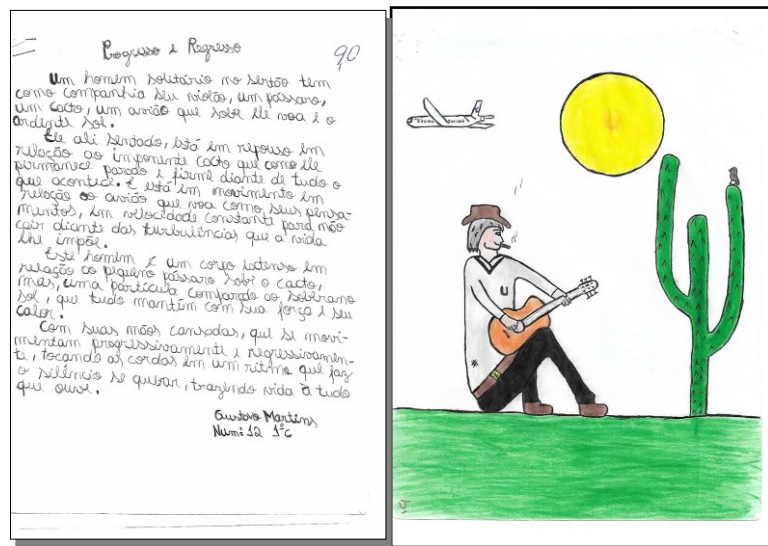 Progresso e Regresso
9,0
Um homem solitário no sertão tem
como companhia seu violão, um pássaro,
um cacto, um avião que sobre ele voa e o
ardente sol.
Ele ali sentado, está em repouso em
relação ao imponente cacto que como ele
permanece parado e firme diante de tudo o
que acontece. E está em movimento em
relação ao avião que voa como seus pensa-
mentos, em velocidade constante para não
cair diante das turbulências que a vida
lhe impõe.
Este homem é um corpo extenso em
relação ao pequeno pássaro sobre o cacto,
mas, uma partícula comparado ao soberano
sol, que tudo mantém com sua força e seu
calor.
Com suas mãos cansadas, que se movi-
mentam progressivamente e regressivamen-
te, tocando as cordas em um ritmo que faz
o silêncio se quebrar, trazendo vida à tudo
que ouve.
Gustavo Martins
Num: 12 1ºc